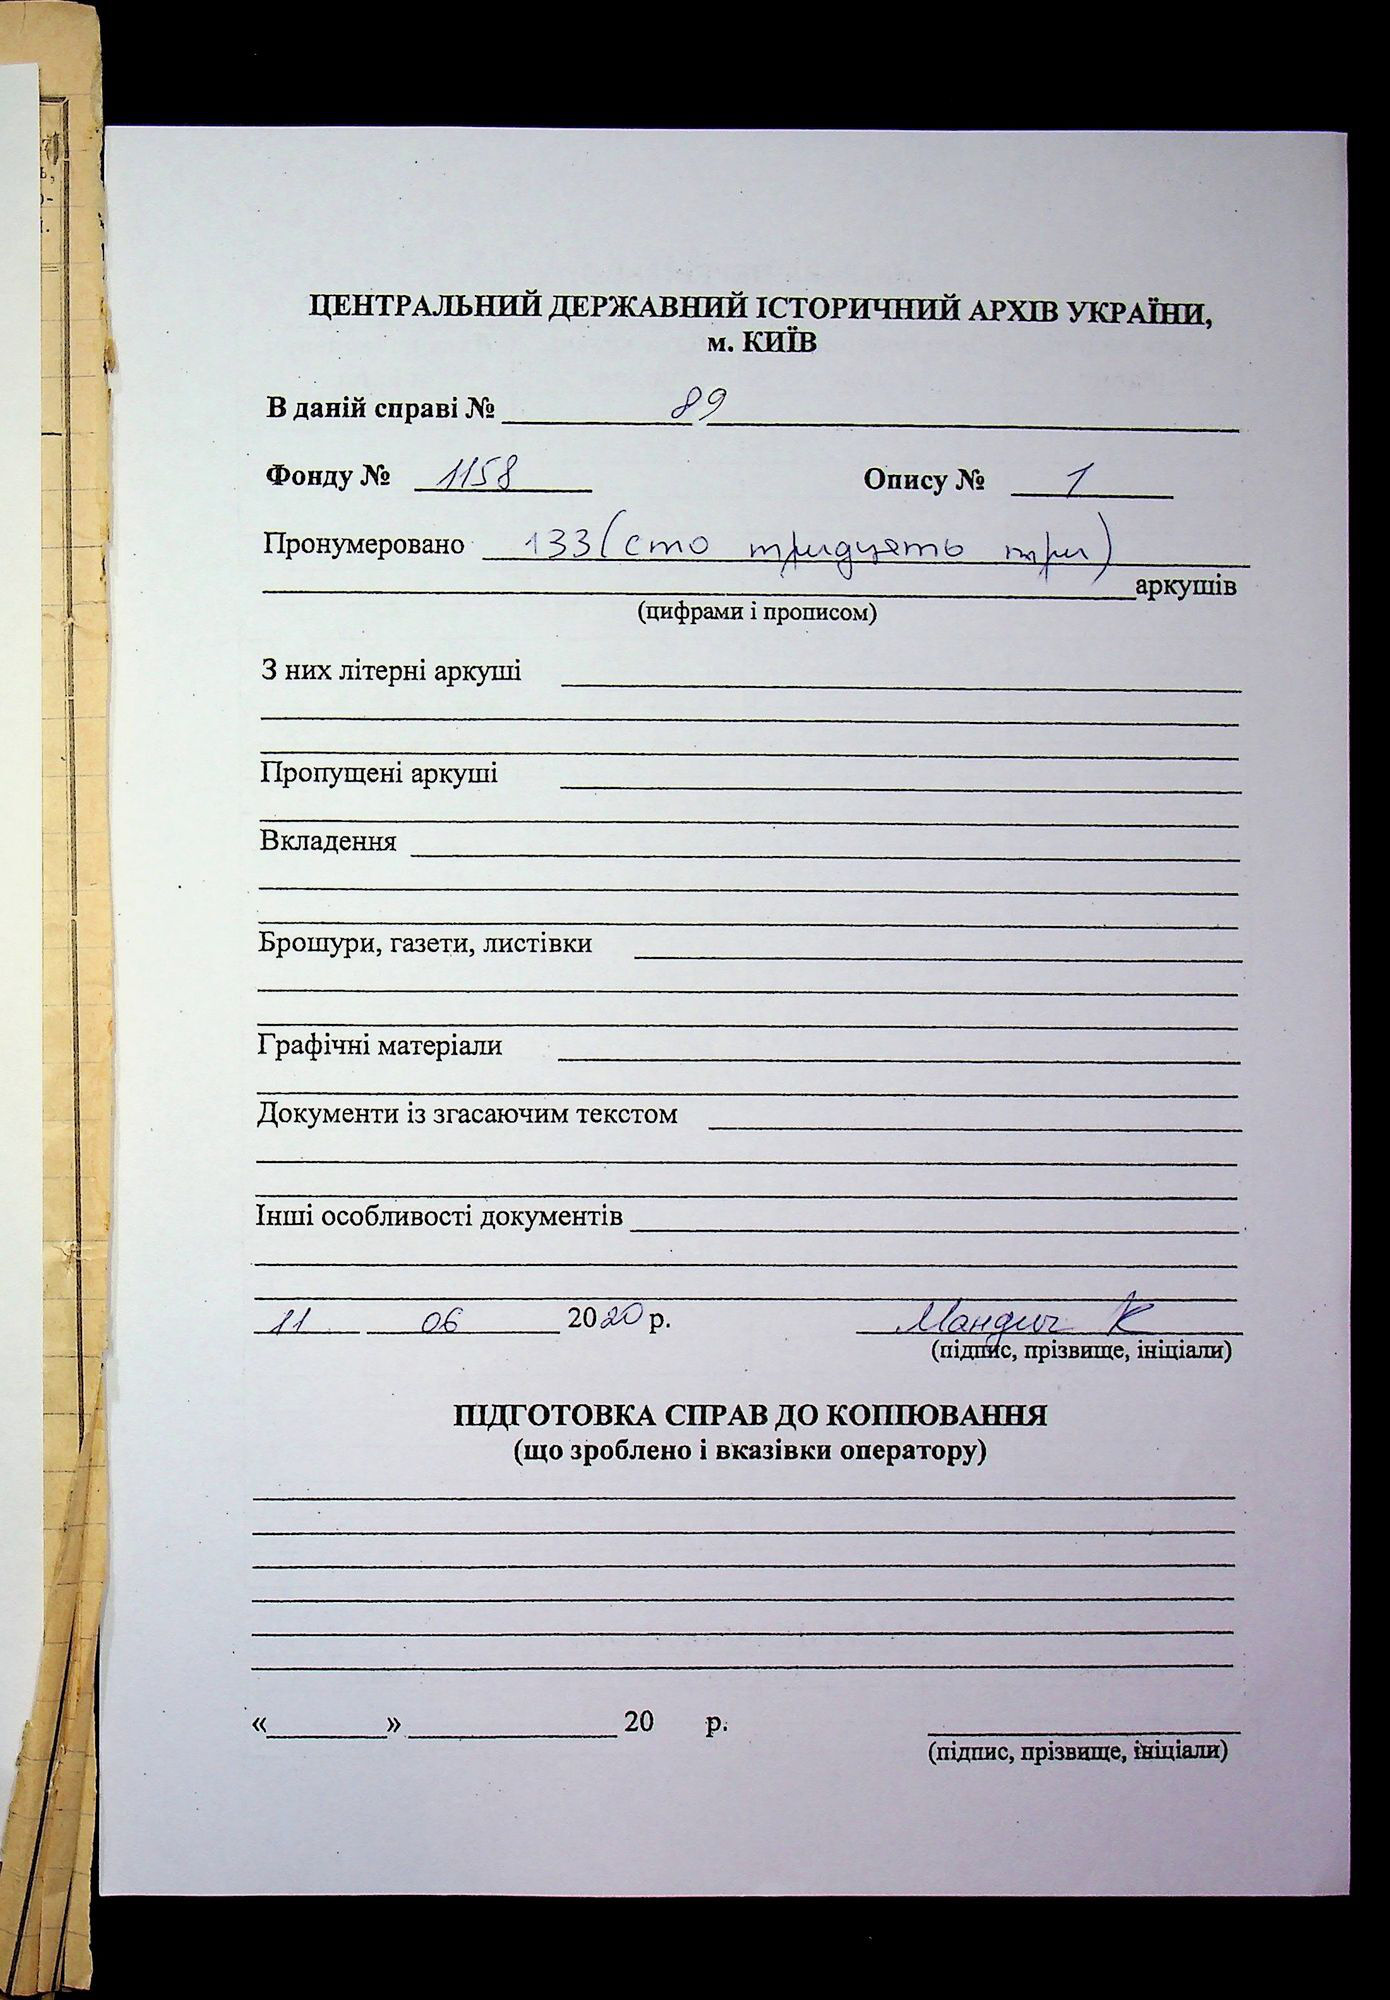 ЦЕНТРАЛЬНИЙ ДЕРЖАВНИЙ ІСТОРИЧНИЙ АРХІВ УКРАЇНИ,
м. КИЇВ
В даній справі № 89
Фонду № 1158 Опису № 1
Пронумеровано 133 (сто тридцять три)
аркушів
(цифрами і прописом)
З них літерні аркуші
Пропущені аркуші
Вкладення
Брошури, газети, листівки
Графічні матеріали
Документи із згасаючим текстом
Інші особливості документів
11 06 2020 р. Мандич К
(підпис, прізвище, ініціали)
ПІДГОТОВКА СПРАВ ДО КОПІЮВАННЯ
(що зроблено і вказівки оператору)
« » 20 р.
(підпис, прізвище, ініціали)